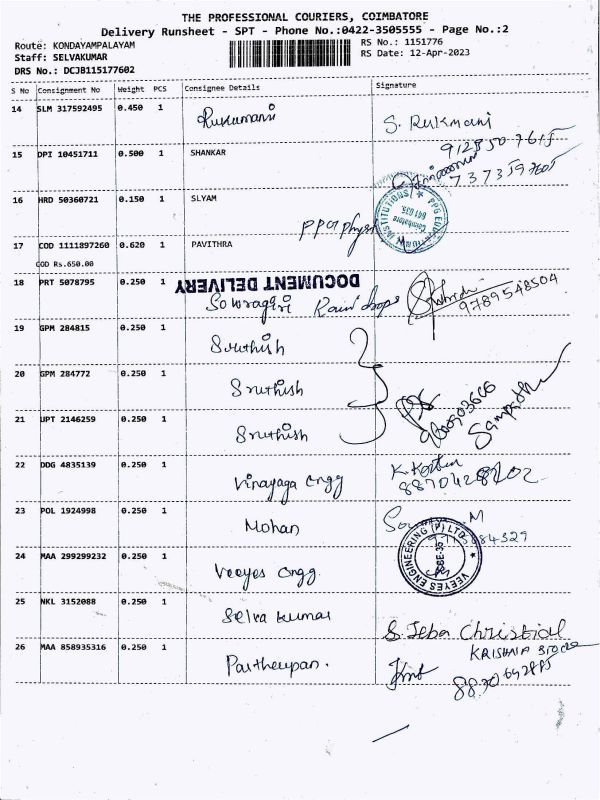 THE PROFESSIONAL COURIERS, COIMBATORE
Delivery Runsheet - SPT - Phone No.:0422-3505555 - Page No.:2
Route: KONDAYAMPALAYAM
Staff: SELVAKUMAR
DRS No.: DCJB115177602
RS No.: 1151776
RS Date: 12-Apr-2023
S No Consignment No Weight PCS Consignee Details Signature
14 SLM 317592495 0.450 1 Rukumani S. Rukmani
15 DPI 10451711 0.500 1 SHANKAR
73735
16 HRD 50360721 0.150 1 SLYAM
641 035. Coimbatore
17 COD 1111897260 0.620 1 PAVITHRA
COD Rs.650.00
18 PRT 5078795 0.250 1 DOCUMENT DELIVERY
Rain drops 9789548504
19 GPM 284815 0.250 1 Sruthish
20 GPM 284772 0.250 1 Sruthish
21 UPT 2146259 0.250 1 Sruthish
22 DDG 4835139 0.250 1 Vinayaga engg
23 POL 1924998 0.250 1 Mohan
24 MAA 299299232 0.250 1 Veeyes engg. VEEYES ENGINEERING (P) LTD
25 NKL 3152088 0.250 1 Selva kumar S. Jeba Christial
26 MAA 858935316 0.250 1 Partheupan. KRISHNA STORE